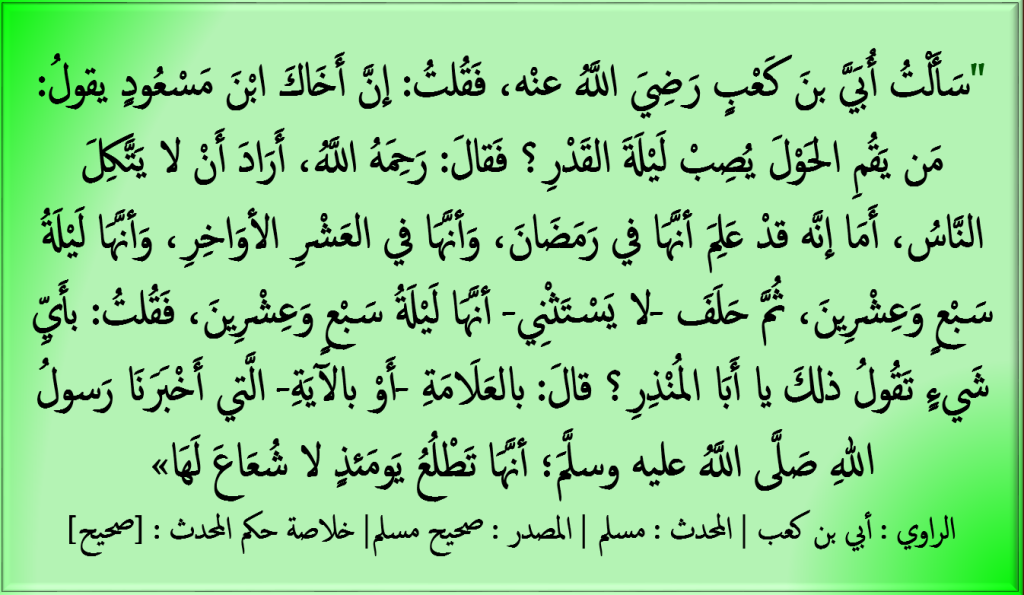 "سَأَلْتُ أُبَيَّ بنَ كَعْبٍ رَضِيَ اللَّهُ عنْه، فَقُلتُ: إنَّ أَخَاكَ ابْنَ مَسْعُودٍ يقولُ:
مَن يَقُمِ الحَوْلَ يُصِبْ لَيْلَةَ القَدْرِ؟ فَقالَ: رَحِمَهُ اللَّهُ، أَرَادَ أَنْ لا يَتَّكِلَ
النَّاسُ، أَمَا إنَّه قدْ عَلِمَ أنَّهَا في رَمَضَانَ، وَأنَّهَا في العَشْرِ الأوَاخِرِ، وَأنَّهَا لَيْلَةُ
سَبْعٍ وَعِشْرِينَ، ثُمَّ حَلَفَ -لا يَسْتَثْنِي- أنَّهَا لَيْلَةُ سَبْعٍ وَعِشْرِينَ، فَقُلتُ: بأَيِّ
شَيءٍ تَقُولُ ذلكَ يا أَبَا المُنْذِرِ؟ قالَ: بالعَلَامَةِ -أَوْ بالآيَةِ- الَّتي أَخْبَرَنَا رَسولُ
اللهِ صَلَّى اللَّهُ عليه وسلَّمَ؛ أنَّهَا تَطْلُعُ يَومَئذٍ لا شُعَاعَ لَهَا»
الراوي : أبي بن كعب | المحدث : مسلم | المصدر : صحيح مسلم| خلاصة حكم المحدث : [صحيح]